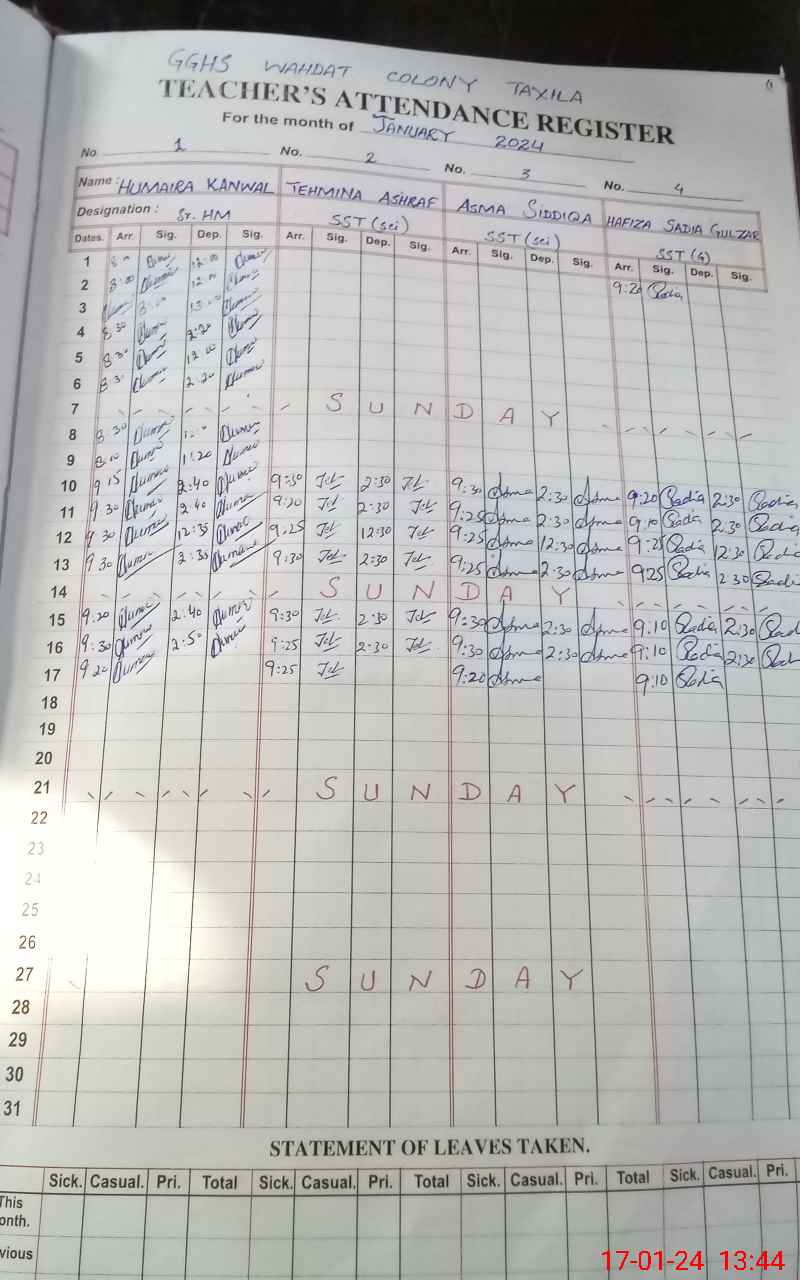 GGHS WAHDAT COLONY TAXILA
TEACHER'S ATTENDANCE REGISTER
For the month of JANUARY 2024
No. 1 No. 2 No. 3 No. 4
Name : HUMAIRA KANWAL TEHMINA ASHRAF ASMA SIDDIQA HAFIZA SADIA GULZAR
Designation : Sr. HM SST (sci) SST (sci) SST (G)
Dates. Arr. Sig. Dep. Sig. Arr. Sig. Dep. Sig. Arr. Sig. Dep. Sig. Arr. Sig. Dep. Sig.
1 12:00
2 8:00 12:00 9:20 Sadia
3
4 8:30 2:20
5 8:30 12:00
6 8:30 2:20
7 SUNDAY
8 8:30
9 8:10 1:20
10 9 15 2:40 9:30 2:30 9:30 Asma 2:30 Asma 9:20 Sadia 2:30 Sadia
11 9 30 2:40 9:20 2:30 9:25 Asma 2:30 Asma 9:10 Sadia 2:30 Sadia
12 9 30 12:35 9:25 12:30 9:25 Asma 12:30 Asma 9:25 Sadia 12:30 Sadia
13 9 30 2:35 9:30 2:30 9:25 Asma 2:30 Asma 9:25 Sadia 2 30 Sadia
14 SUNDAY
15 9:20 2:40 9:30 2:30 9:30 Asma 2:30 Asma 9:10 Sadia 2:30 Sad
16 9:30 2:50 9:25 2:30 9:30 Asma 2:30 Asma 9:10 Sadia 2:30 Sad
17 9 20 9:25 9:20 Asma 9:10 Sadia
18
19
20
21 SUNDAY
22
23
24
25
26
27 SUNDAY
28
29
30
31
STATEMENT OF LEAVES TAKEN.
Sick. Casual. Pri. Total Sick. Casual. Pri. Total Sick. Casual. Pri. Total Sick. Casual. Pri.
This
onth.
vious
17-01-24 13:44